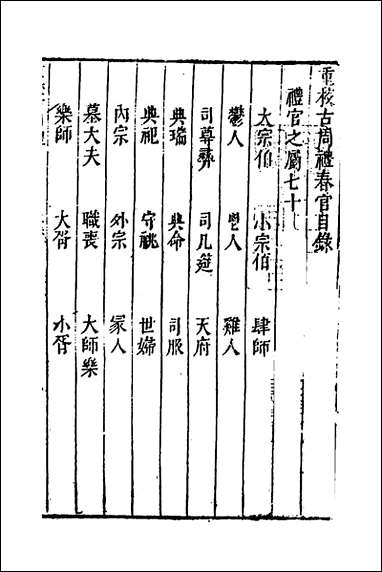 重校古周禮春官目錄
禮官之屬七十
大宗伯 小宗伯 肆師
鬱人 鬯人 雞人
司尊彝 司几筵 天府
典瑞 典命 司服
典祀 守祧 世婦
內宗 外宗 冢人
墓大夫 職喪 大師樂
樂師 大胥 小胥